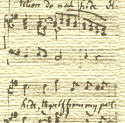 do not hide
hide thyself from my pe